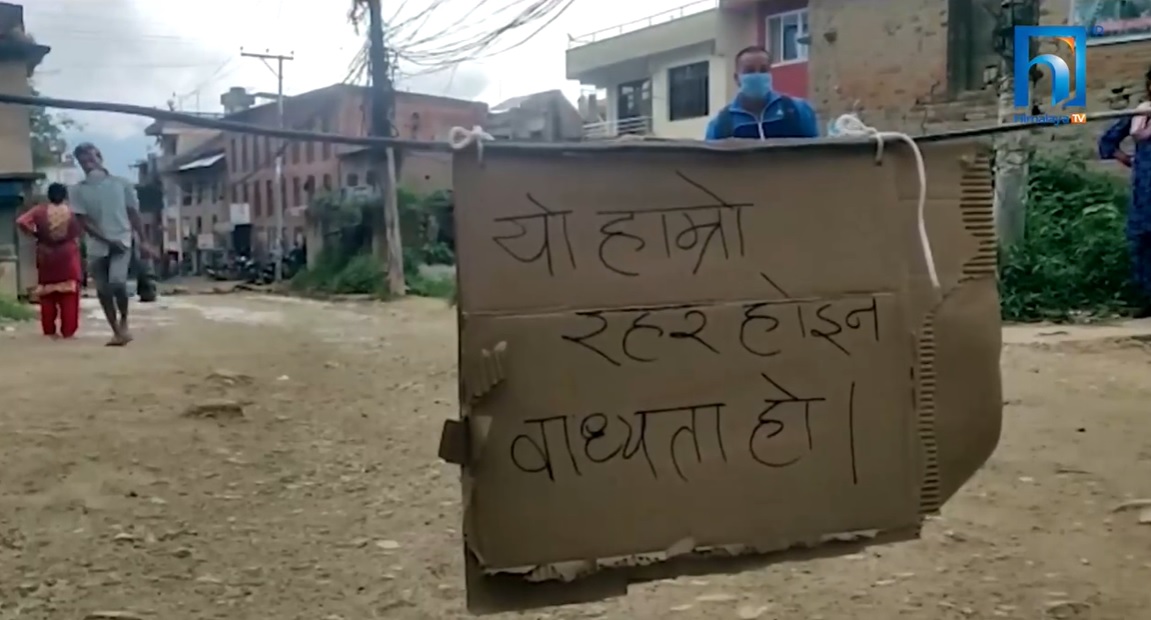 Himalaya TV
यो हाम्रो
रहर होइन
वाध्यता हो।